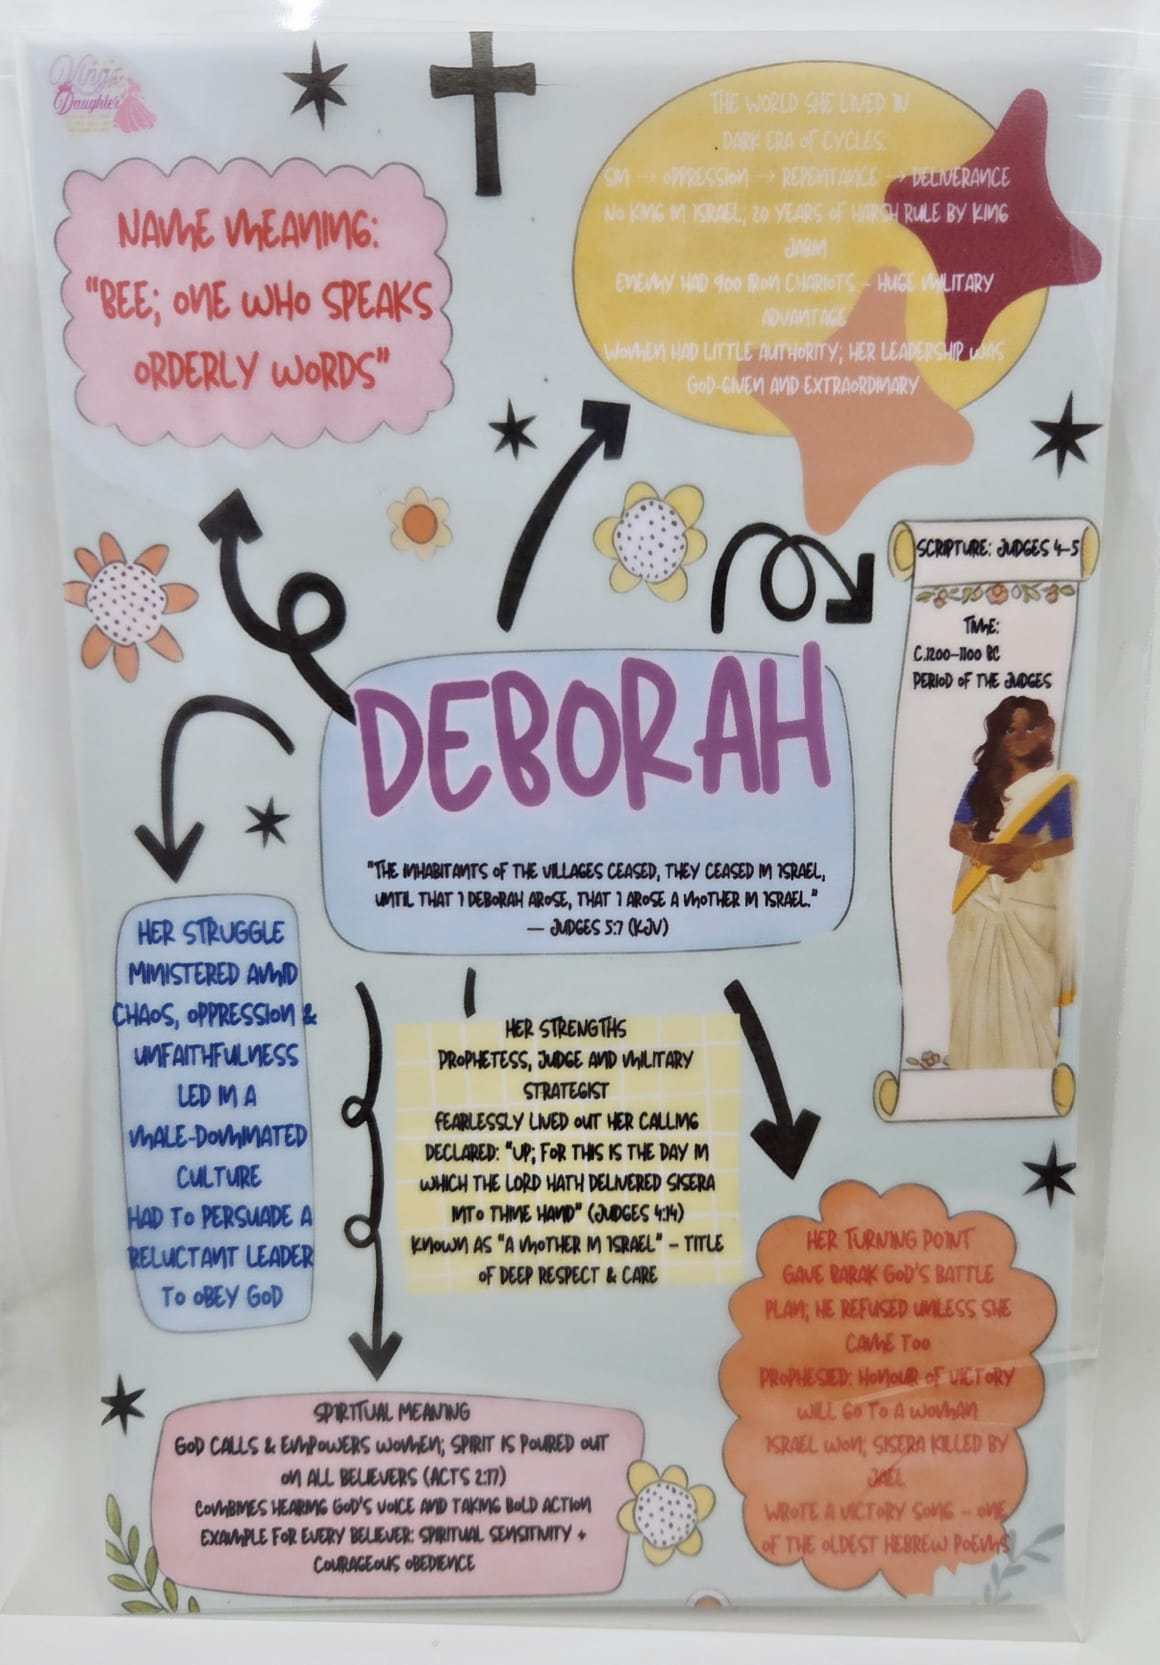 Kings
Daughter
NAME MEANING:
"BEE; ONE WHO SPEAKS
ORDERLY WORDS"
THE WORLD SHE LIVED IN
DARK ERA OF CYCLES:
SIN → OPPRESSION → REPENTANCE → DELIVERANCE
NO KING IN ISRAEL, 20 YEARS OF HARSH RULE BY KING
JABIN
ENEMY HAD 900 IRON CHARIOTS – HUGE MILITARY
ADVANTAGE
WOMEN HAD LITTLE AUTHORITY; HER LEADERSHIP WAS
GOD-GIVEN AND EXTRAORDINARY
SCRIPTURE: JUDGES 4–5
TIME:
C.1200–1100 BC
PERIOD OF THE JUDGES
DEBORAH
"THE INHABITANTS OF THE VILLAGES CEASED, THEY CEASED IN ISRAEL,
UNTIL THAT I DEBORAH AROSE, THAT I AROSE A MOTHER IN ISRAEL."
— JUDGES 5:7 (KJV)
HER STRUGGLE
MINISTERED AMID
CHAOS, OPPRESSION &
UNFAITHFULNESS
LED IN A
MALE-DOMINATED
CULTURE
HAD TO PERSUADE A
RELUCTANT LEADER
TO OBEY GOD
HER STRENGTHS
PROPHETESS, JUDGE AND MILITARY
STRATEGIST
FEARLESSLY LIVED OUT HER CALLING
DECLARED: "UP; FOR THIS IS THE DAY IN
WHICH THE LORD HATH DELIVERED SISERA
INTO THINE HAND" (JUDGES 4:14)
KNOWN AS "A MOTHER IN ISRAEL" – TITLE
OF DEEP RESPECT & CARE
HER TURNING POINT
GAVE BARAK GOD'S BATTLE
PLAN; HE REFUSED UNLESS SHE
CAME TOO
PROPHESIED: HONOUR OF VICTORY
WILL GO TO A WOMAN
ISRAEL WON; SISERA KILLED BY
JAEL
WROTE A VICTORY SONG – ONE
OF THE OLDEST HEBREW POEMS
SPIRITUAL MEANING
GOD CALLS & EMPOWERS WOMEN; SPIRIT IS POURED OUT
ON ALL BELIEVERS (ACTS 2:17)
COMBINES HEARING GOD'S VOICE AND TAKING BOLD ACTION
EXAMPLE FOR EVERY BELIEVER: SPIRITUAL SENSITIVITY +
COURAGEOUS OBEDIENCE